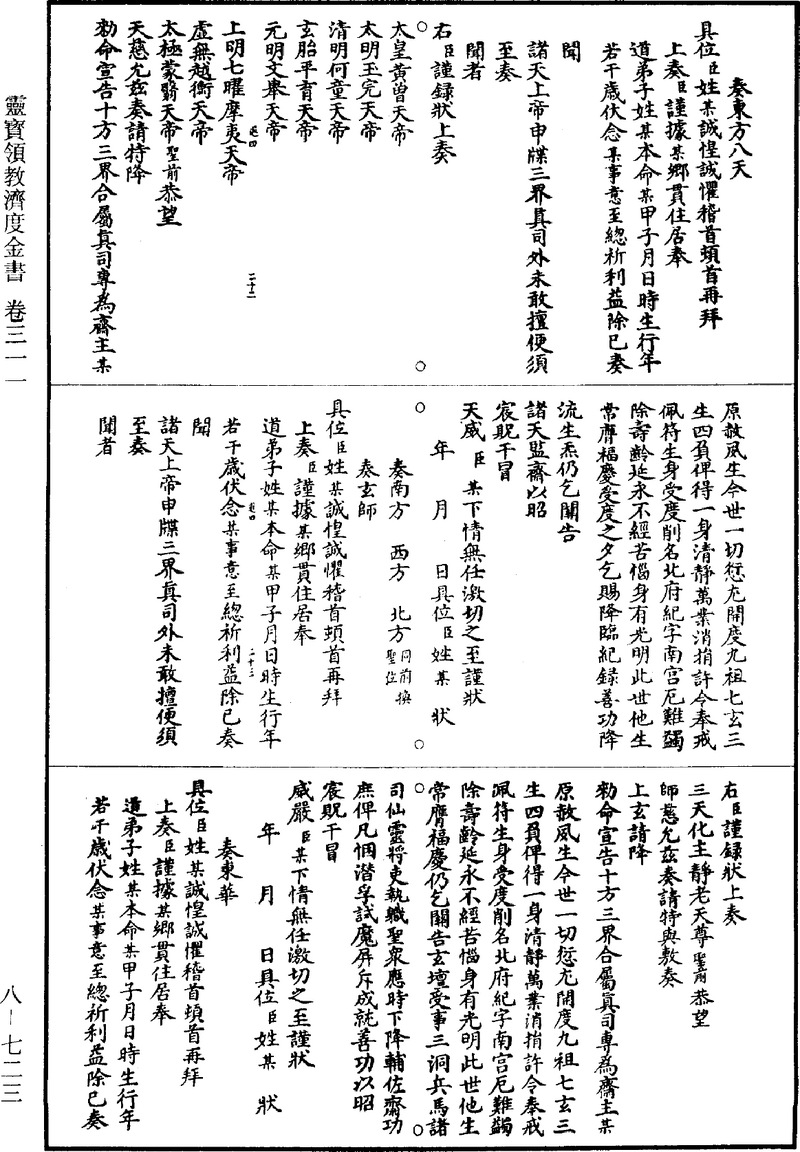 奏東方八天
具位臣姓某誠惶誠懼稽首頓首再拜
上奏臣謹據某鄉貫住居奉
道弟子姓某本命某甲子月日時生行年
若干歲伏念某事意至總祈利益除已奏
聞
諸天上帝申牒三界真司外未敢擅便須
至奏
聞者
右臣謹錄狀上奏
太皇黃曾天帝
太明玉完天帝
清明何童天帝
玄胎平育天帝
元明文舉天帝
上明七曜摩夷天帝
虛無越衡天帝
太極蒙翳天帝聖前恭望
天慈允茲奏請特降
勑命宣告十方三界合屬真司專為齋主某
原赦夙生今世一切愆尤開度九祖七玄三
生四負俾得一身清靜萬業消捐許令奉戒
佩符生身受度削名北府紀字南宮厄難蠲
除壽齡延永不經苦惱身有光明此世他生
常膺福慶受度之夕乞賜降臨紀錄善功降
流生炁仍乞關告
諸天監齋以昭
宸貺干冒
天威臣某下情無任激切之至謹狀
年 月 日具位臣姓某 狀
奏南方 西方 北方同前換聖位
奏玄師
具位臣姓某誠惶誠懼稽首頓首再拜
上奏臣謹據某鄉貫住居奉
道弟子姓某本命某甲子月日時生行年
若干歲伏念某事意至總祈利益除已奏
聞
諸天上帝申牒三界真司外未敢擅便須
至奏
聞者
右臣謹錄狀上奏
三天化主靜老天尊聖前恭望
師慈允茲奏請特與敷奏
上玄請降
勑命宣告十方三界合屬真司專為齋主某
原赦夙生今世一切愆尤開度九祖七玄三
生四負俾得一身清靜萬業消捐許令奉戒
佩符生身受度削名北府紀字南宮厄難蠲
除壽齡延永不經苦惱身有光明此世他生
常膺福慶仍乞關告玄壇受事三洞兵馬諸
司仙靈將吏執職聖衆應時下降輔佐齋功
庶俾凡悃潛孚試魔屏斥成就善功以昭
宸貺干冒
威嚴臣某下情無任激切之至謹狀
年 月 日具位臣姓某 狀
奏東華
具位臣姓某誠惶誠懼稽首頓首再拜
上奏臣謹據某鄉貫住居奉
道弟子姓某本命某甲子月日時生行年
若干歲伏念某事意至總祈利益除已奏
靈寶領教濟度金書 卷三一一
八－七二三
二十二
二十三